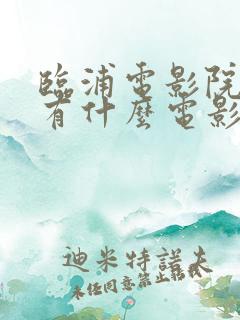 臨浦電影院
有什麼電影
迪米特諾夫
未經同意禁止轉載